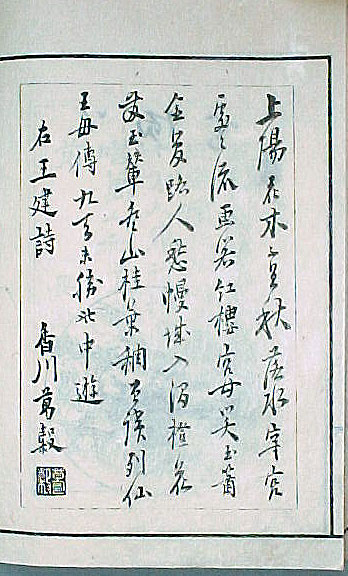 上陽花木不曾秋洛水穿宮
處々流画閣紅樓宮女笑玉簫
金管路人愁幔城入澗橙花
發玉輦登山桂葉稠曾讀列仙
王母傳九天未勝此中遊
右王建詩 香川